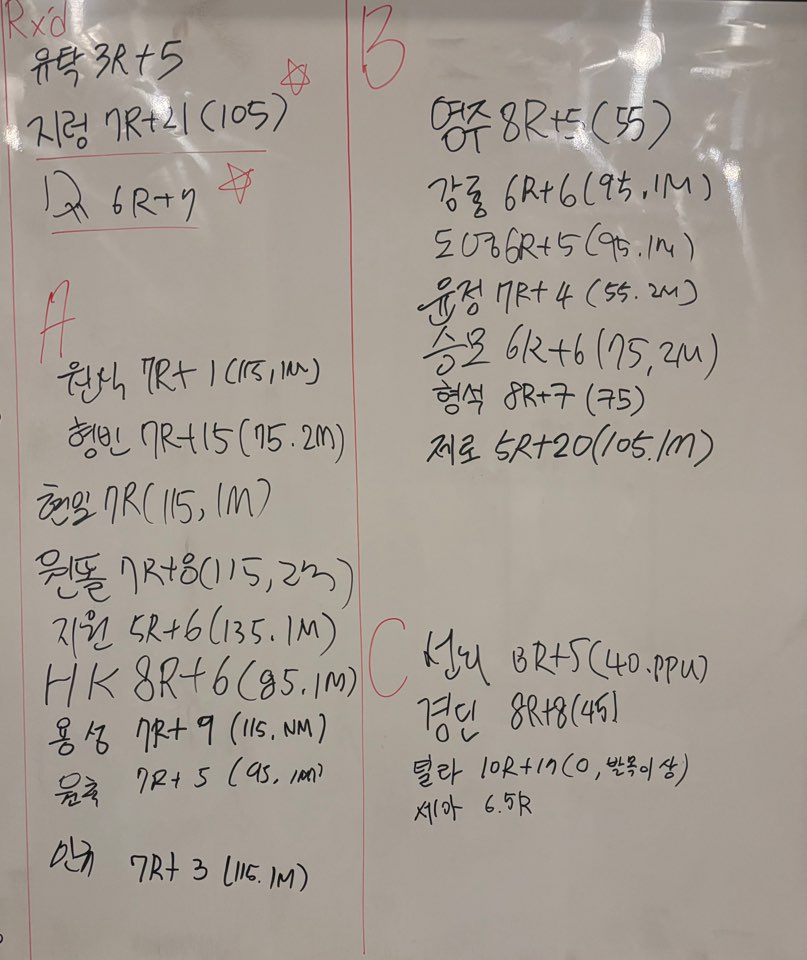 Rx'd
유탁 3R+5
지렁 7R+21(105)
6R+7
A
원식 7R+1(115,1M)
형빈 7R+15(75.2M)
현일 7R(115,1M)
원똘 7R+8(115,2M)
지원 5R+6(135.1M)
HK 8R+6(85.1M)
용성 7R+9(115,NM)
7R+5(95,1M)
민규 7R+3(115.1M)
B
영주 8R+5(55)
강룡 6R+6(95,1M)
도영 6R+5(95.1M)
윤정 7R+4(55.2M)
승모 6R+6(75,2M)
형석 8R+7(75)
제로 5R+20(105.1M)
C
R+5(40.PPU)
경민 8R+8(45)
털라 10R+17(0,발목이상)
세아 6.5R